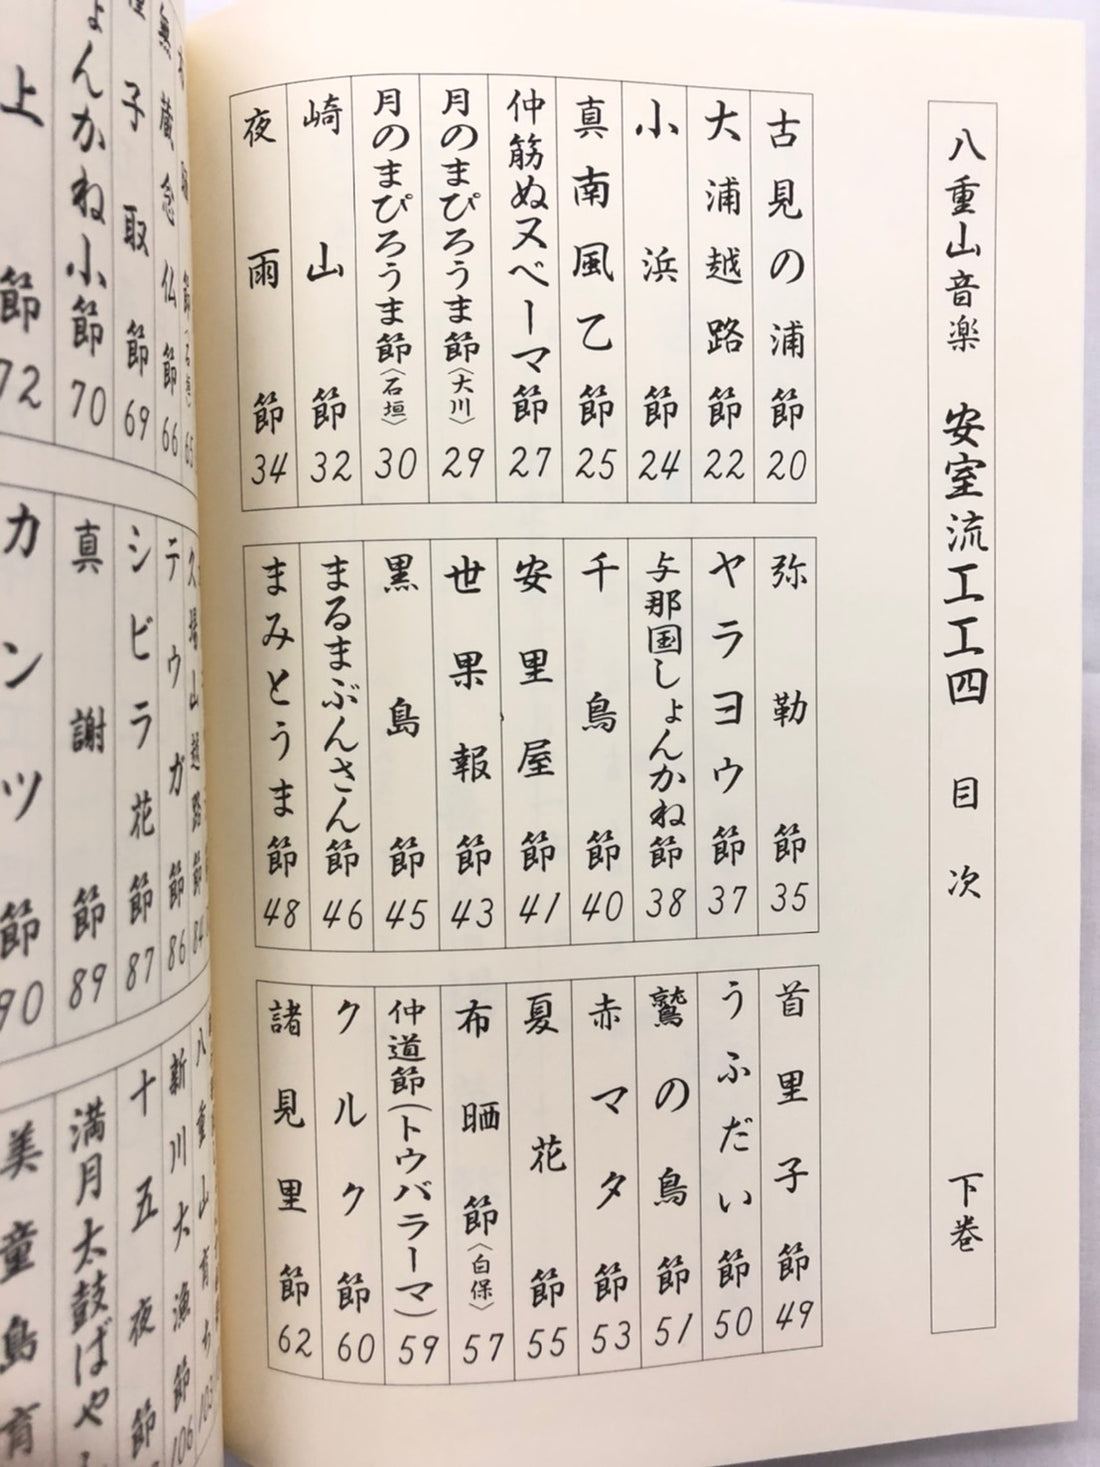 八重山音楽 安室流工工四 目次 下巻
古見の浦節 20
大浦越路節 22
小浜節 24
真南風乙節 25
仲筋ぬヌベーマ節 27
月のまぴろうま節〈大川〉 29
月のまぴろうま節〈石垣〉 30
崎山節 32
夜雨節 34
弥勒節 35
ヤラヨウ節 37
与那国しょんかね節 38
千鳥節 40
安里屋節 41
世果報節 43
黒島節 45
まるまぶんさん節 46
まみとうま節 48
首里子節 49
うふだい節 50
鷲の鳥節 51
赤マタ節 53
夏花節 55
布晒節〈白保〉 57
仲道節(トウバラーマ) 59
クルク節 60
諸見里節 62
無蔵念仏節 66
子取節 69
ょんかね小節 70
上節 72
久場山越路節 84
テウガ節 86
シビラ花節 87
真謝節 89
カンツ節 90
八重山育ち 103
新川大漁節 106
十五夜節
満月太鼓ばやし
美童島育